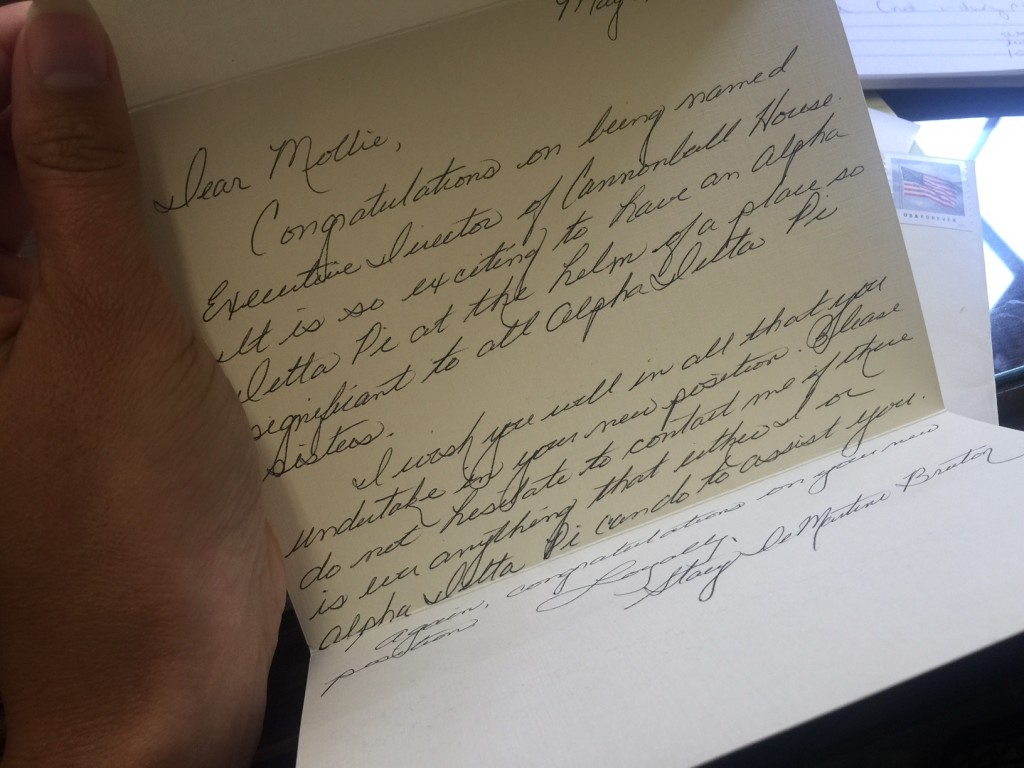 May
Dear Mollie,
Congratulations on being named
Executive Director of Cannonball House.
It is so exciting to have an Alpha
Delta Pi at the helm of a place so
significant to all Alpha Delta Pi
sisters.
I wish you well in all that you
undertake in your new position. Please
do not hesitate to contact me if there
is ever anything that either I or
Alpha Delta Pi can do to assist you.
Again, congratulations on your new
position
Loyally,
Stacy DeMartini Bruton
USA FOREVER